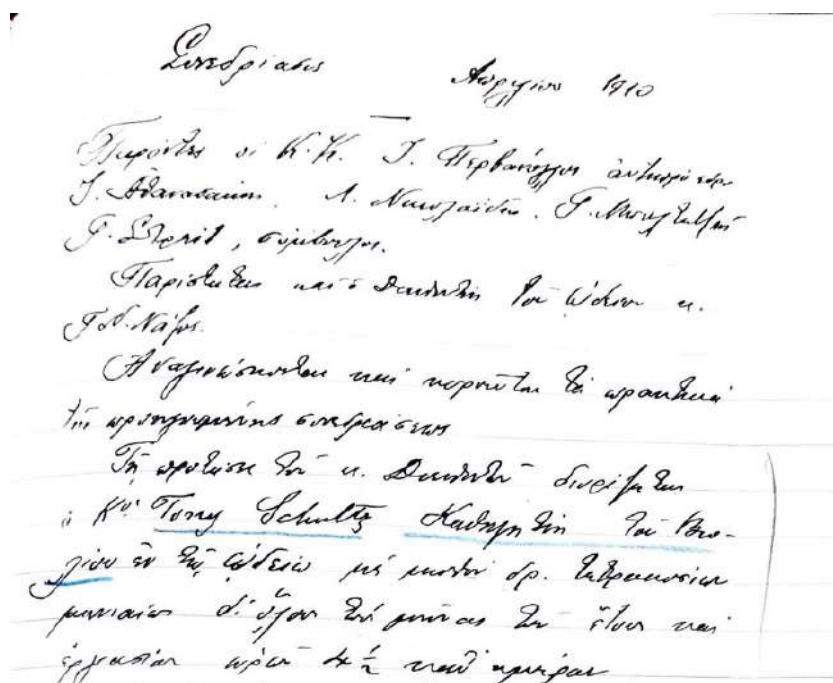 Συνεδρίασις
Απριλίου 1910
Παρόντες οι Κ.Κ. Ι. Περβανόγλου αντιπρόεδρ.
Ι. Αθανασάκης, Λ. Νικολαΐδης, Γ. Μπαλτατζής
Γ. Στρέιτ, σύμβουλοι.
Παρίσταται και ο Διευθυντής του Ωδείου κ.
Γ. Ν. Νάζος.
Αναγινώσκονται και κυρούνται τα πρακτικά
της προηγουμένης συνεδριάσεως
Τη προτάσει του κ. Διευθυντού διορίζεται
ο Κος Tony Schultz Καθηγητής του Βιο-
λίου εν τω Ωδείω με μισθόν δρ. τετρακοσίων
μηνιαίως δι' όλους τους μήνας του έτους και
εργασίαν ωρών 4 1/2 καθ' ημέραν